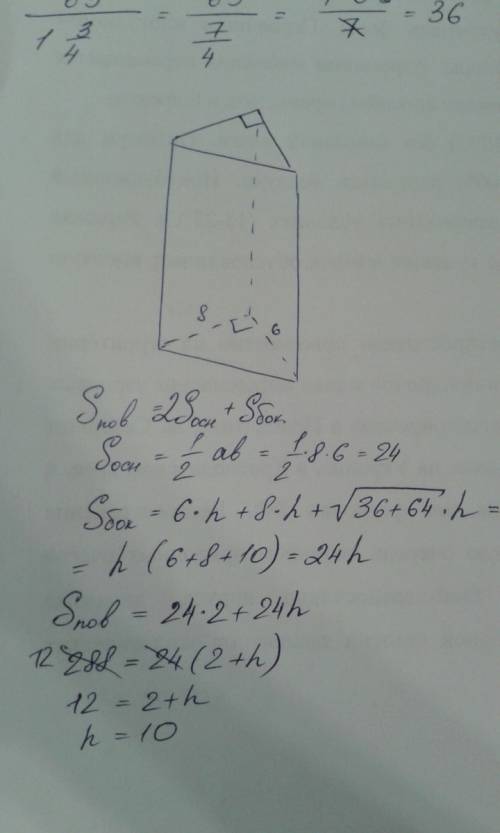 1 3/4 = 7/4 = 7 = 36
8 6
Sпов = 2Sосн + Sбок.
Sосн = 1/2 ab = 1/2 · 8 · 6 = 24
Sбок = 6 · h + 8 · h + √36+64 · h =
= h (6+8+10) = 24h
Sпов = 24 · 2 + 24h
12 288 = 24 (2+h)
12 = 2+h
h = 10